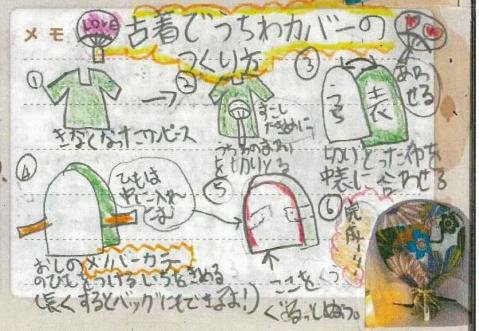 メモ
LOVE
古着でうちわカバーの
つくり方
①
きなくなったワンピース
②
すこし
大きめに
うちわのまわり
を切りとる
③
うら
表
あわ
せる
切りとった布を
中表に合わせる
④
ひもは
中に入れ
こむ
おしのメンバーカラー
のひもをつける いちをきめる
(長くするとバッグにもできるよ!)
⑤
ここをくつ
ぐるっとぬう。
⑥
完成!!